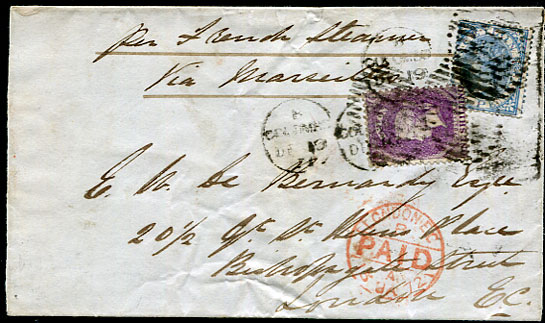 per French Steamer
Via Marseilles
A
COLOMBO
DE 19
E. W. De Bernardy Esqre
20½ Gt. St. Helens Place
Bishopsgate Street
London E.C.
LONDON E.C.
PAID
72